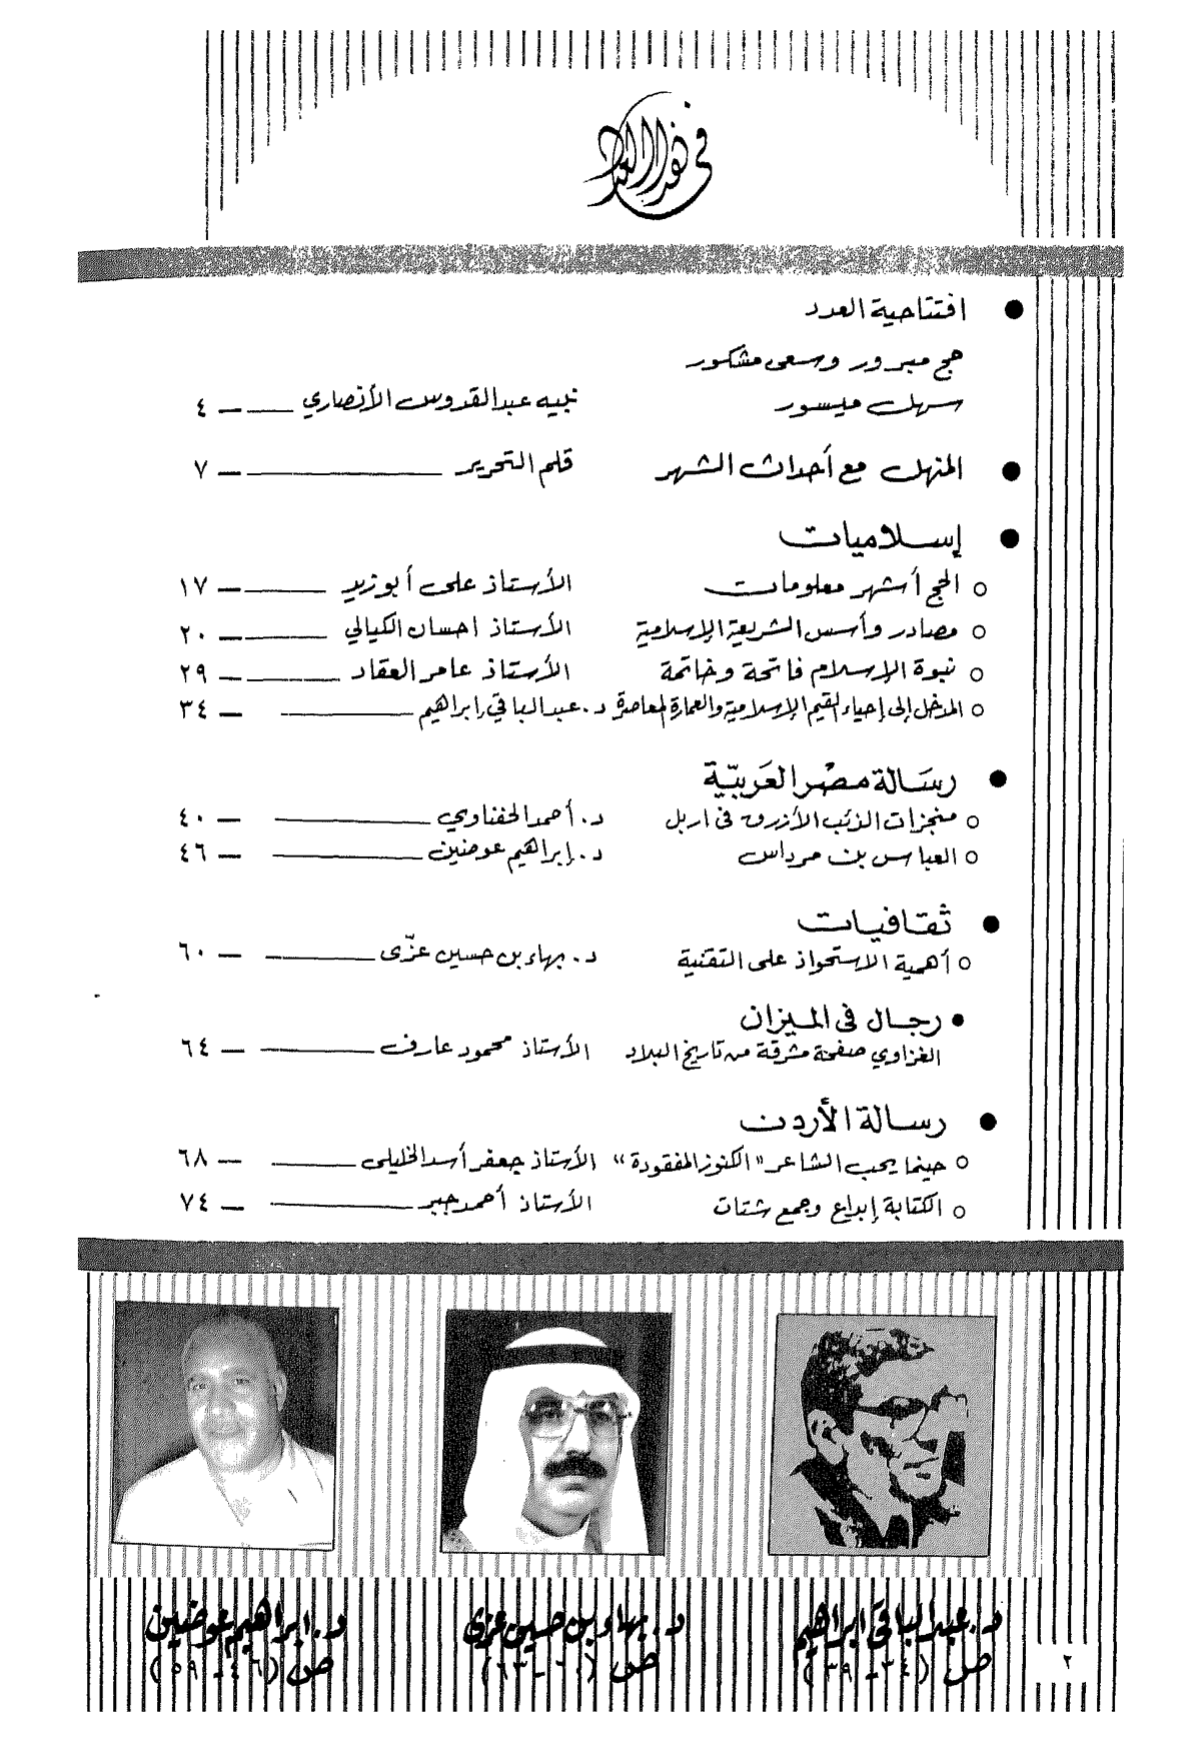 في هذا العدد
● افتتاحية العدد
حج مبرور وسعى مشكور
سهل ميسور نبيه عبدالقدوس الأنصاري ــ ٤
● المنهل مع أحداث الشهر قلم التحرير ــ ٧
● إسلاميات
○ الحج أشهر معلومات الأستاذ على أبوزيد ــ ١٧
○ مصادر وأسس الشريعة الإسلامية الأستاذ احسان الكيالي ــ ٢٠
○ نبوة الإسلام فاتحة وخاتمة الأستاذ عامر العقاد ــ ٢٩
○ المدخل إلى إحياء القيم الإسلامية والعمارة المعاصرة د. عبدالباقي إبراهيم ــ ٣٤
● رسَالة مصْر العَربيّة
○ منجزات الذئب الأزرق فى اربل د. أحمد الحفناوي ــ ٤٠
○ العباس بن مرداس د. إبراهيم عوضين ــ ٤٦
● ثقافيات
○ أهمية الاستحواذ على التقنية د. بهاء بن حسين عزّى ــ ٦٠
● رجال فى الميزان
الغزاوي صفحة مشرقة من تاريخ البلاد الأستاذ محمود عارف ــ ٦٤
● رسالة الأردن
○ حينما يحب الشاعر "الكنوز المفقودة" الأستاذ جعفر أسد الخليلى ــ ٦٨
○ الكتابة إبداع وجمع شتات الأستاذ أحمد جبر ــ ٧٤
د. عبدالباقي ابراهيم
ص (٣٤ - ٣٩)
د. بهاء بن حسين عزي
ص (٦٠ - ٦٣)
د. ابراهيم عوضين
ص (٤٦ - ٥٩)
٢